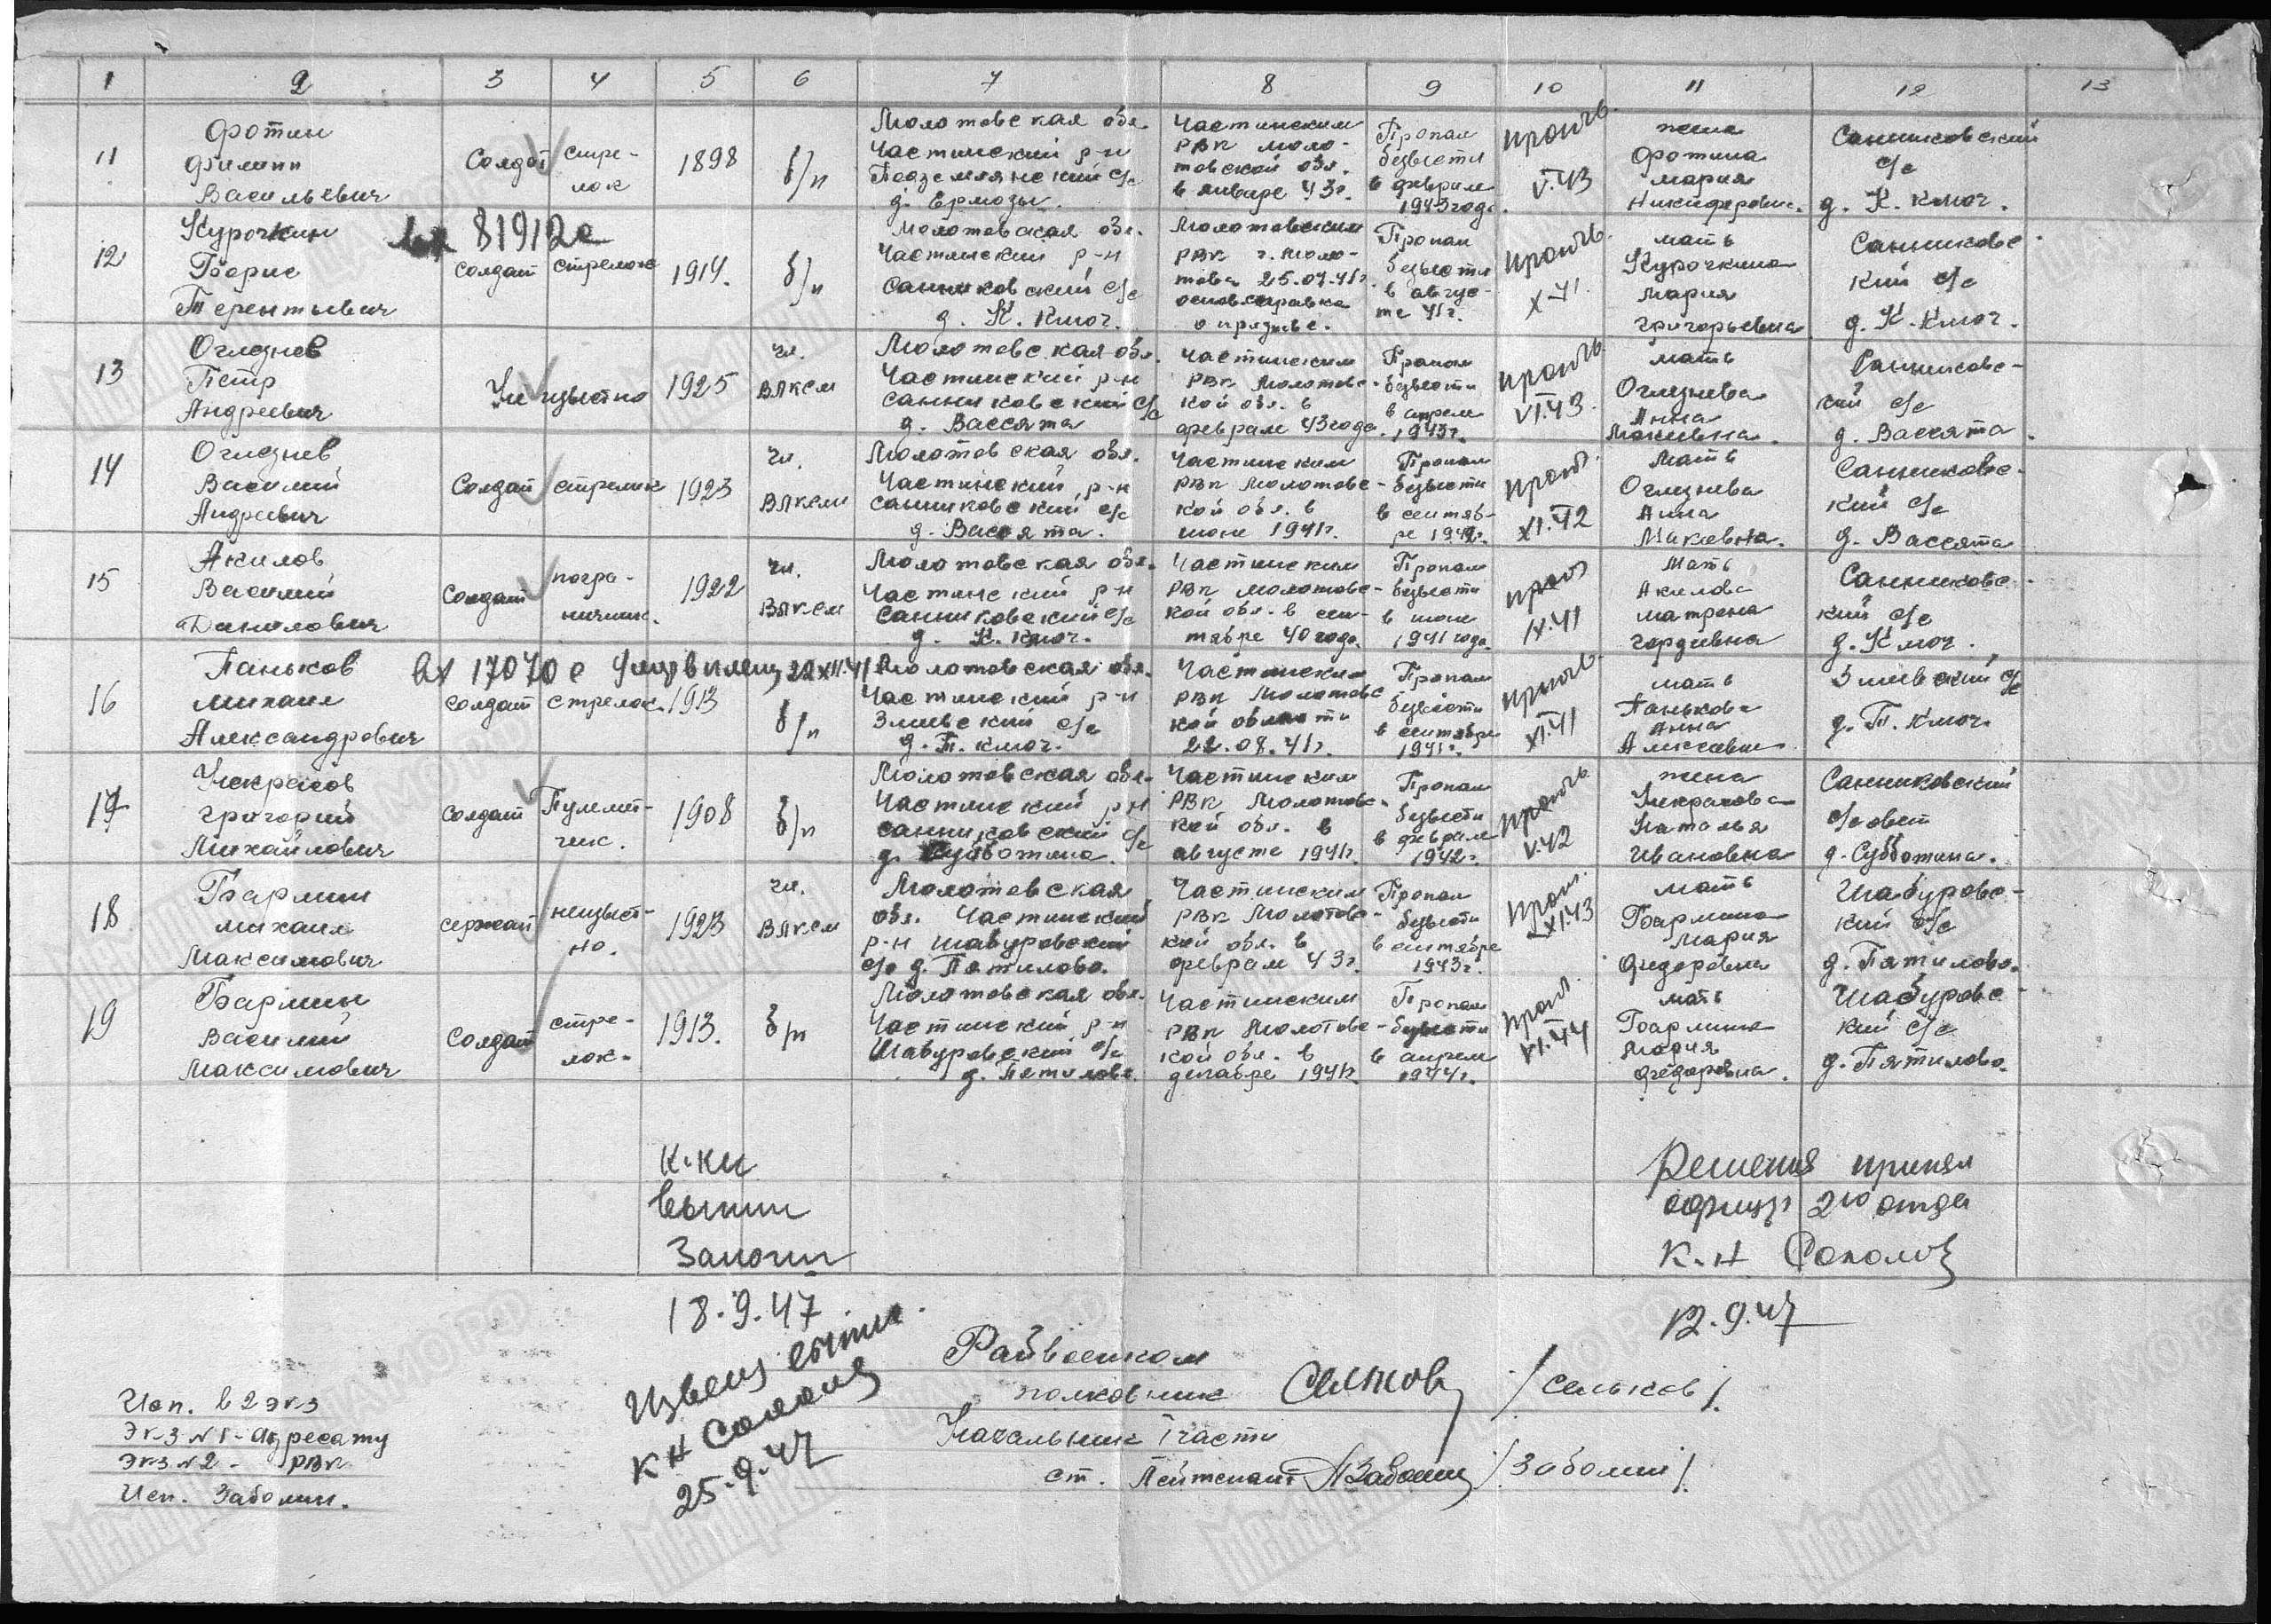 1 2 3 4 5 6 7 8 9 10 11 12 13
11
Фотин
Филипп
Васильевич
Солдат
стре-
лок
1898
б/п
Молотовская обл.
Частинский р-н
Подземлянский с/с
д. Ермозы.
Частинским
РВК Моло-
товской обл.
в январе 43г.
Пропал
безвести
в феврале
1943 года.
V.43
жена
Фотина
Мария
Никифоровн.
Санниковский
с/с
д. К. Ключ.
12
Курочкин
Борис
Терентьевич
вх 81912с
солдат
стрелок
1914.
б/п
Молотовская обл.
Частинский р-н
Санниковский с/с
д. К. Ключ.
Молотовским
РВК г. Моло-
това 25.07.41г.
основ. справка
о призыве.
Пропал
безвести
в авгус-
те 41г.
X-41.
мать
Курочкина
Мария
Григорьевна
Санниковс-
кий с/с
д. К. Ключ.
13
Огледнев
Петр
Андреевич
Не известно
1925
чл.
ВЛКСМ
Молотовская обл.
Частинский р-н
Санниковский с/с
д. Вассята
Частинским
РВК Молотовс-
кой обл. в
феврале 43 года.
Пропал
безвести
в апреле
1943г.
VI.43.
мать
Огледнева
Анна
Макиевна.
Санниковс-
кий с/с
д. Вассята.
14
Огледнев
Василий
Андреевич
Солдат
стрелок
1923
чл.
ВЛКСМ
Молотовская обл.
Частинский р-н
Санниковский с/с
д. Вассята.
Частинским
РВК Молотовс-
кой обл. в
июне 1941г.
Пропал
безвести
в сентяб-
ре 1942г.
XI.42
Мать
Огледнева
Анна
Макиевна.
Санниковс-
кий с/с
д. Вассята
15
Акилов
Василий
Данилович
Солдат
погра-
ничник.
1922
чл.
ВЛКСМ
Молотовская обл.
Частинский р-н
Санниковский с/с
д. К. Ключ.
Частинским
РВК Молотовс-
кой обл. в сен-
тябре 40 года.
Пропал
безвести
в июне
1941 года.
IX.41
Мать
Акилова
Матрена
Гордеевна
Санниковс-
кий с/с
д. К Ключ.
16
Паньков
Михаил
Александрович
вх 17070с Умер в плену 22 XII.41
солдат
стрелок.
1913
б/п
Молотовская обл.
Частинский р-н
Змеевский с/с
д. Т. Ключ.
Частинским
РВК Молотовс
кой области
22.08.41г.
Пропал
безвести
в сентябре
1941г.
XI.41
мать
Панькова
Анна
Алексеевн.
Змеевский с/с
д. Т. Ключ.
17
Некрасов
Григорий
Михайлович
солдат
Пулемёт-
чик.
1908
б/п
Молотовская обл.
Частинский р-н
Санниковский с/с
д. Субботина.
Частинским
РВК Молотовс-
кой обл. в
августе 1941г.
Пропал
безвести
в феврале
1942г.
V.42
жена
Некрасова
Наталья
Ивановна
Санниковский
с/совет
д. Субботина.
18
Бармин
Михаил
Максимович
сержант
неизвест-
но.
1923
чл.
ВЛКСМ
Молотовская
обл. Частинский
р-н Шабуровский
с/с д. Пятилово.
Частинским
РВК Молотовс-
кой обл. в
феврале 43г.
Пропал
безвести
в сентябре
1943г.
XI.43
мать
Бармина
Мария
Федоровна
Шабуровс-
кий с/с
д. Пятилово.
19
Бармин
Василий
Максимович
Солдат
стре-
лок.
1913.
б/п
Молотовская обл.
Частинский р-н
Шабуровский с/с
д. Пятилово.
Частинским
РВК Молотовс-
кой обл. в
декабре 1941г.
Пропал
безвести
в апреле
1944г.
VI.44
мать
Бармина
Мария
Федоровна.
Шабуровс-
кий с/с
д. Пятилово.
18.9.47
25.9.47
Решения принял
офицер 2го отдел
к-н Соколов
12.9.47
Райвоенком
полковник /Сельков/.
Начальник 1 части
ст. Лейтенант /Заболин/.
Исп. в 2 экз
Экз №1 - Адресату
Экз №2 - РВК
Исп. Заболин.